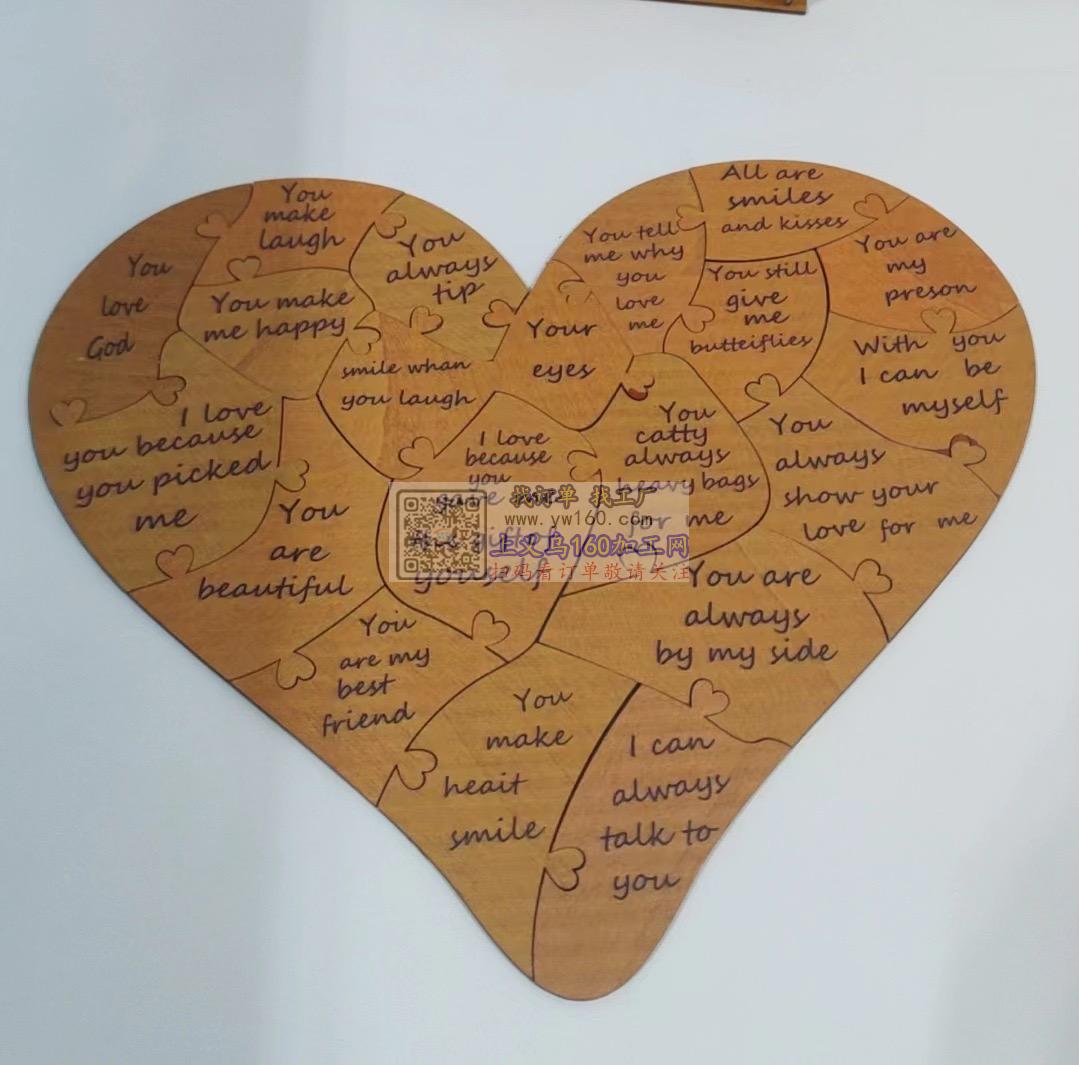 You
love
God
You
make
laugh
You make
me happy
You
always
tip
smile whan
you laugh
Your
eyes
You tell
me why
you
love
me
All are
smiles
and kisses
You still
give
me
butteiflies
You are
my
preson
With you
I can be
myself
You
always
show your
love for me
You
catty
always
heavy bags
for me
I love
because
you
gave me
gifted
youself
I love
you because
you picked
me
You
are
beautiful
You
are my
best
friend
You are
always
by my side
You
make
heait
smile
I can
always
talk to
you
找订单 找工厂
www.yw160.com
上义乌160加工网
扫码看订单敬请关注